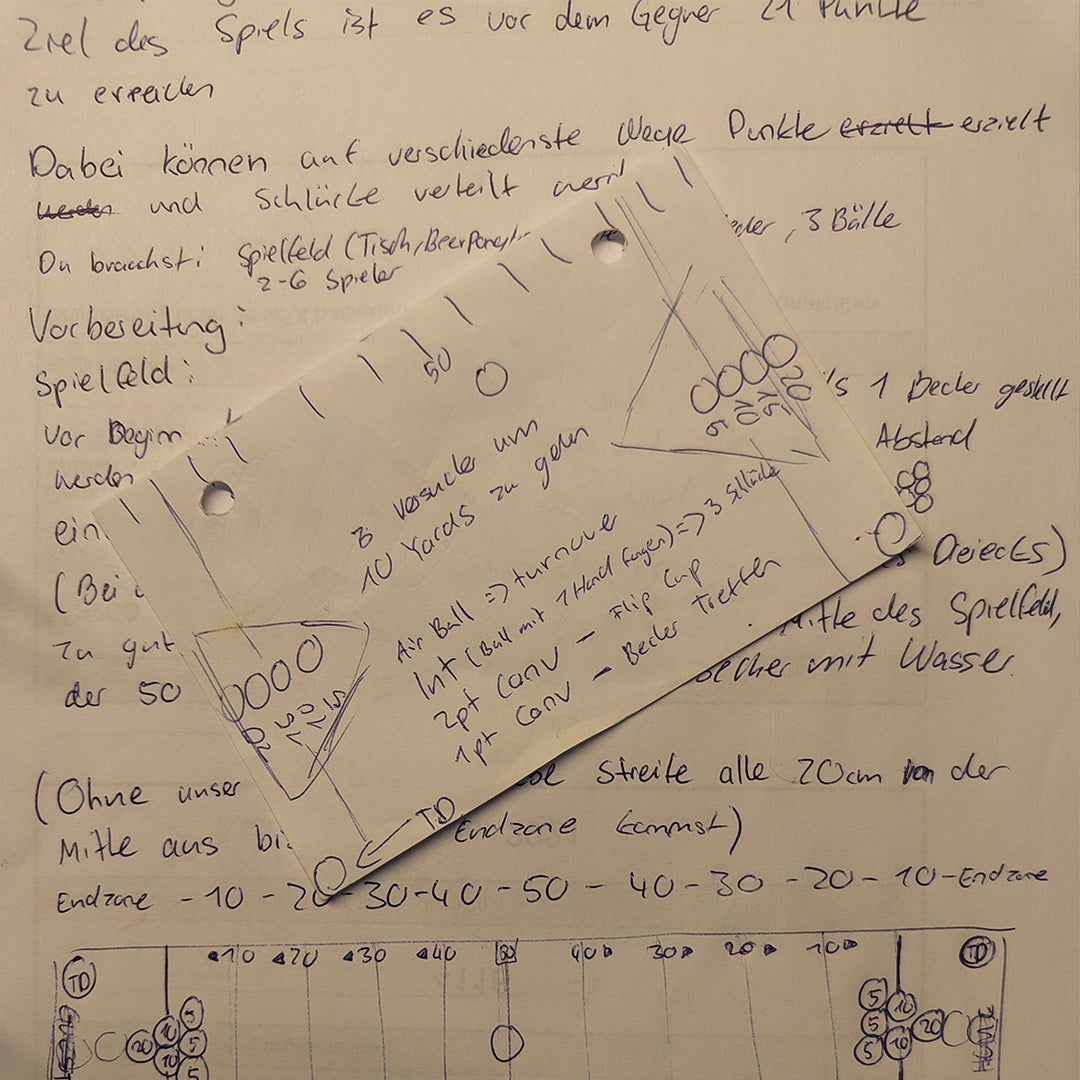 Ziel des Spiels ist es vor dem Gegner 21 Punkte
zu erreichen
Dabei können auf verschiedenste Wege Punkte erzielt erzielt
werden und Schlücke verteilt
Du brauchst: Spielfeld (Tisch, , 3 Bälle
2-6 Spieler
Vorbereitung:
Spielfeld:
Vor Beginn 1 Becher gestellt
werden Abstand
ein
(Bei Dreiecks)
zu gut Mitte des Spielfeld,
der 50 Becher mit Wasser.
(Ohne unser Streife alle 20cm von der
Mitte aus bis Endzone kommst)
Endzone - 10 - 20 - 30 - 40 - 50 - 40 - 30 - 20 - 10 - Endzone
◂10 ◂20 ◂30 ◂40 50 40▸ 30▸ 20▸ 10▸
TD TD
20 10 10 5 5 5
5 5 5 10 10 20
50
5 10 15 20
3 versuche um
10 Yards zu gehen
Air Ball => turnover
Int (Ball mit 1 Hand fangen) => 3 Schlücke
2pt Conv - Flip Cup
1pt Conv - Becher Treffen
20 15 10 5
TD